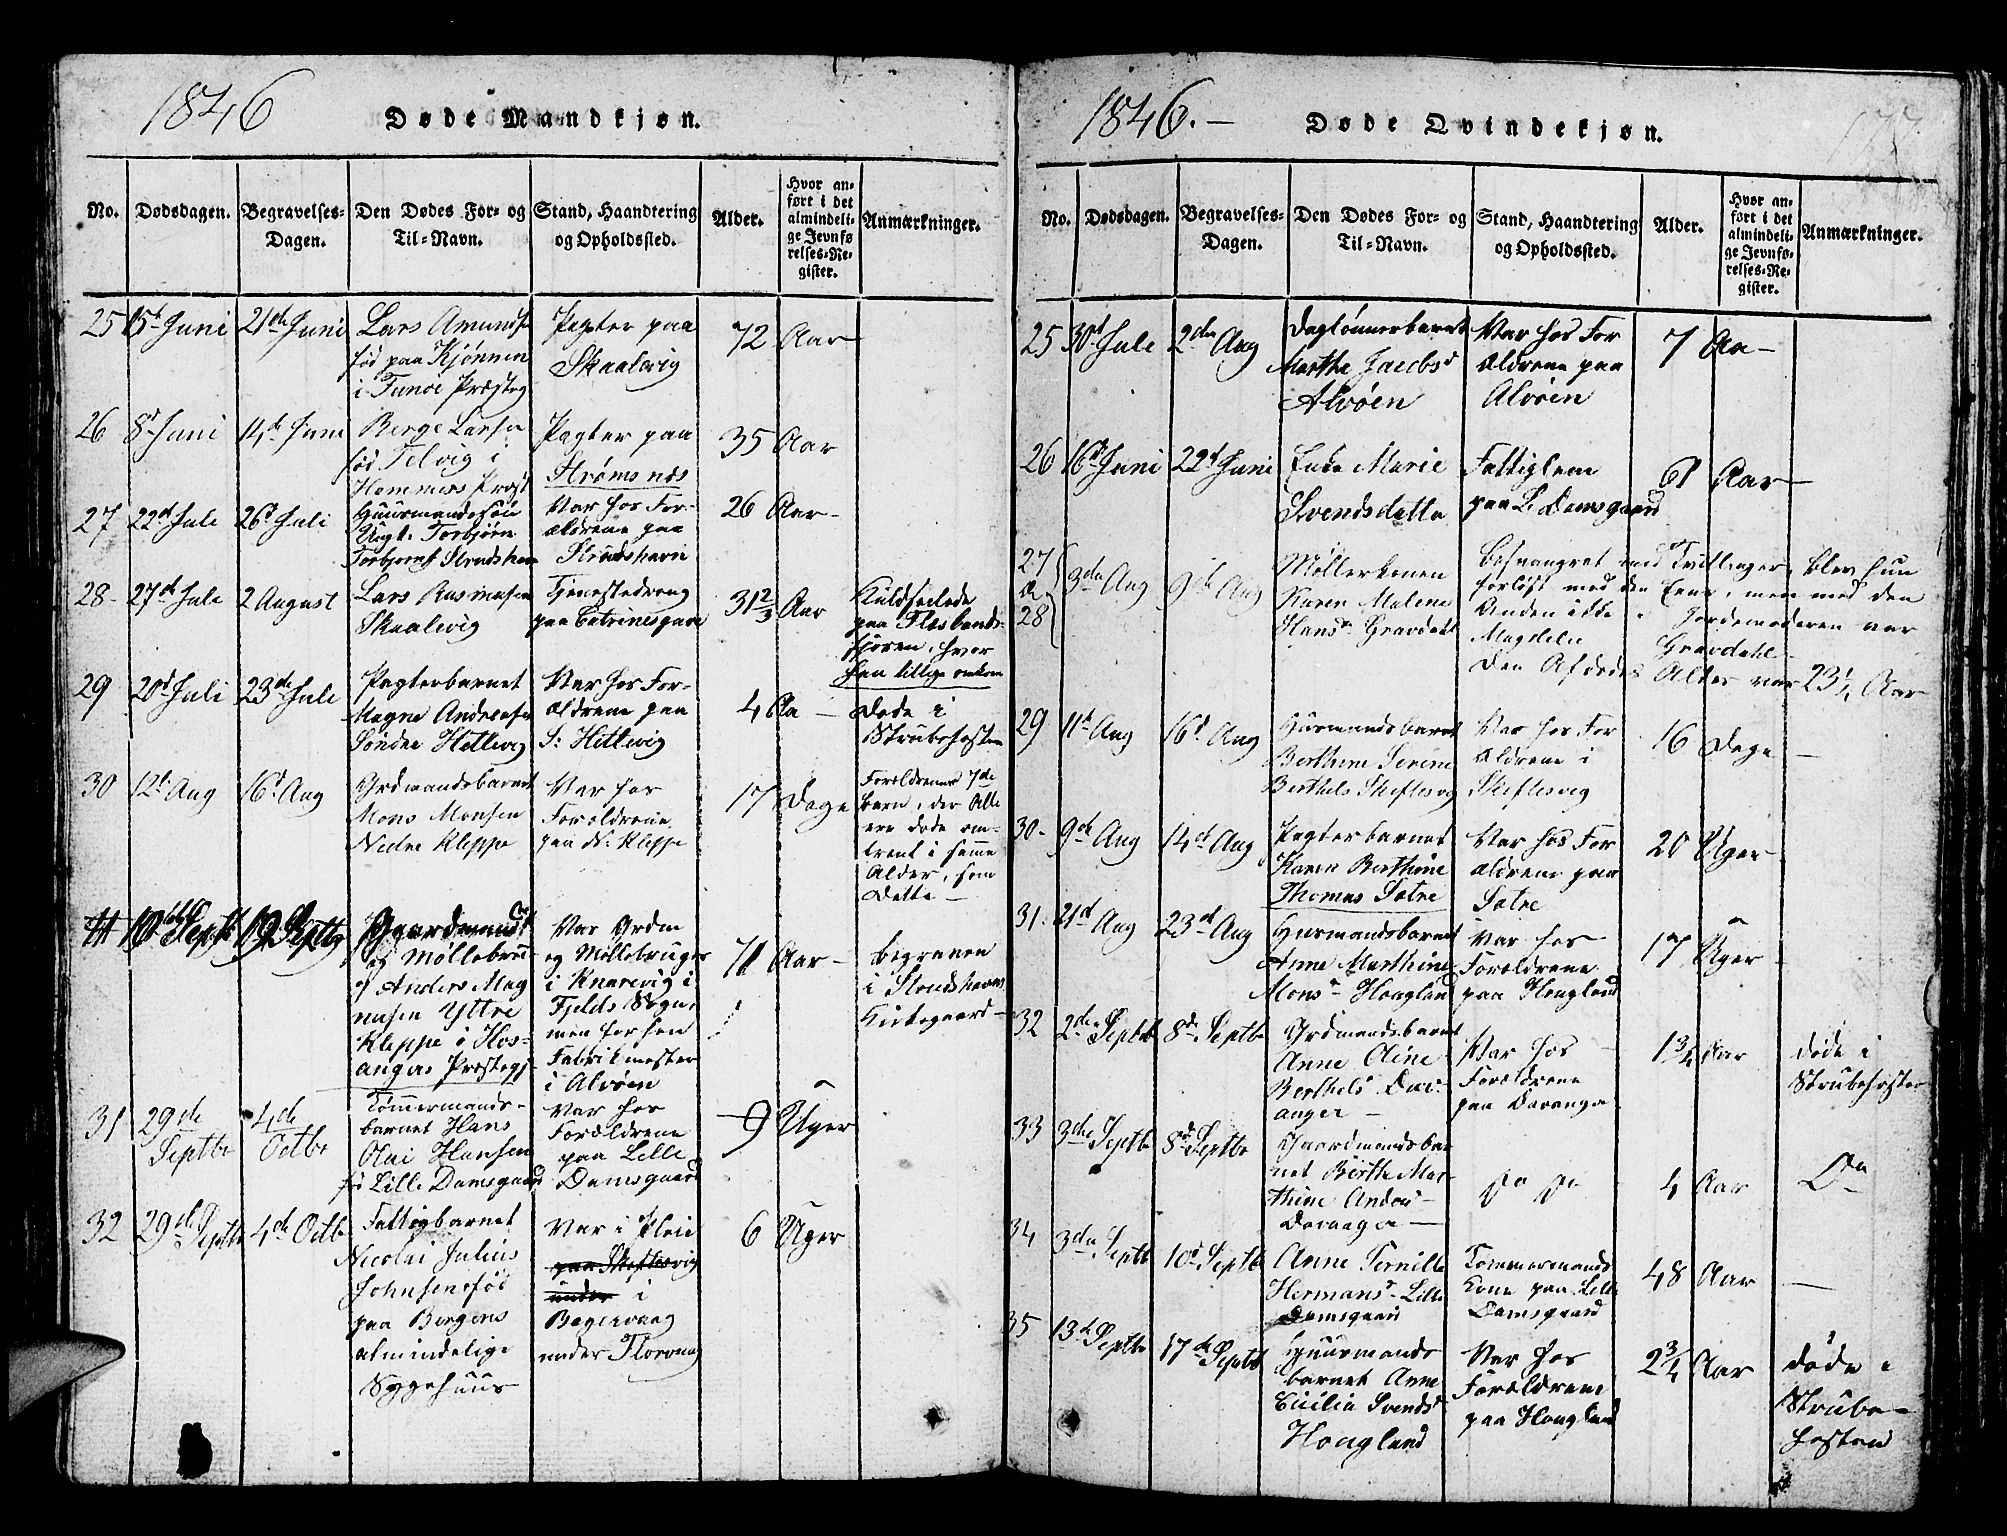 1846
Døde Mandkjøn.
No.
Dødsdagen.
Begravelses-
Dagen.
Den Dødes For- og
Til-Navn.
Stand, Haandtering
og Opholdssted.
Alder.
Hvor an-
ført i det
almindeli-
ge Jevnfø
relses-Re-
gister.
Anmærkninger.
25 15d Juni 21de Juni
Lars Amunds
fød paa Kjønnen
i Funøe Præsteg
Pagter paa
Skaalevig
72 Aar
26 8d Juni 14de Juni
Berge Larsen
fød Telvig i
Hammers Præst
Pagter paa
Strømsnæs
35 Aar
27 22d Juli 26d Juli
Huusmandssøn
Ungk. Torbjørn
Torbjørns Strudshavn
Var hos For-
ældrene paa
Strudshavn
26 Aar-
28- 27de Juli 2 August
Lars Rasmusen
Skaalevig
Tjenestedreng
paa Catrinegaar
31 2/3 Aar
Kuldseilede
paa
fjøren, hvor
han tillige omkom
29 20d Juli 23de Juli
Pagterbarnet
Magne Andersen
Søndre Hettevig
Var hos For-
ældrene paa
S: Hettevig
4 Aa -
døde i
Strubehosten
30 12te Aug 16d Aug
Grdmandsbarnet
Mons Monsen
Nedre Kleppe
Var hos
Forældrene
paa N. Kleppe
17 Dage
Forældrenes 7de
barn, der Alle
ere døde om-
trent i samme
Alder, som
Dette -
10de Septb 19 Septbr
Gaardmand
og Møllebru-
Anders Mag
nusen Yttre
Kleppe i Hos-
angers Præstegj
Var Grdm
og Møllebruger
i Knarrevig i
Fjelds Sogn,
men før han
Fabrikmester
i Alvøen
71 Aar-
begraven
i Strudshavns
Kirkegaard-
31 29de
Septbr
4de
Octbr
Tømmermands-
barnet Hans
Olai Hansen
fød Lille Damsgaard
Var hos
Forældrene
paa Lille
Damsgaard
9 Uger
32 29de Septbr 4de Octb
Fattigbarnet
Nicolai Julius
Johnsen fød
paa Bergens
almindelige
Sygehuus
Var i Pleie
paa Skiftesvig
under i
Bagervaag
under Florvaag
6 Uger
1846.-
Døde Qvindekjøn.
177.
No.
Dødsdagen.
Begravelses-
Dagen.
Den Dødes For- og
Til-Navn.
Stand, Haandtering
og Opholdssted.
Alder.
Hvor an-
ført i det
almindeli-
ge Jevnfø-
relses-Re-
gister.
Anmærkninger.
25 30d Juli 2den Aug
Daglønnerbarnet
Marthe Jacobsd
Alvøen
Var hos For
ældrene paa
Alvøen
7 Aa-
26 16d Juni 22d Juni
Enke Marie
Svendsdatter
Fattiglem
paa L. Damsgaard
61 Aar-
27
&
28
3den Aug 9de Aug
Møllerkonen
Karen Malene
Hansdr Gravdahl
Besvangret med Tvillinger, blev hun
forløst med den Ene, men med den
Anden ikke - Jordemoderen var
Magdele Gravdahl -
Den Afdødes Alder var 23 1/4 Aar
29 11d Aug 16d Aug
Husmandsbarnet
Berthine Serine
Berthels Skiftesvig
Var hos For
ældrene i
Skiftesvig
16 Dage -
30- 9de Aug 14de Aug
Pagterbarnet
Karen Berthine
Thomas Sotre
Var hos For
ældrene paa
Sotre
20 Uger
31. 21d Aug 23d Aug
Husmandsbarnet
Anne Marthine
Monsdr Hougland
Var hos
Forældrene
paa Hougland
17 Uger
32 2den Septbr 8de Septbr
Grdmandsbarnet
Anne Oline
Berthels Dav-
anger -
Var hos
Forældrene
paa Davanger
1 3/4 Aar
døde i
Strubehosten
33 3die Septbr 8d Septbr
Gaardmandsbar
net Birthe Mar-
thine Anders-
Davanger -
Do Do
4 Aar
Do
34 3die Septb 10d Septb
Anne Pernille
Hermansdr Lille
Damsgaard
Tømmermands
Kone paa Lille
Damsgaard
48 Aar -
35 13de Septbr 17de Septb
Huusmands
barnet Anne
Cicilia Svendsd
Hougland
Var hos
Forældrene
paa Hougland
2 3/4 Aar
døde i
Strube-
hosten